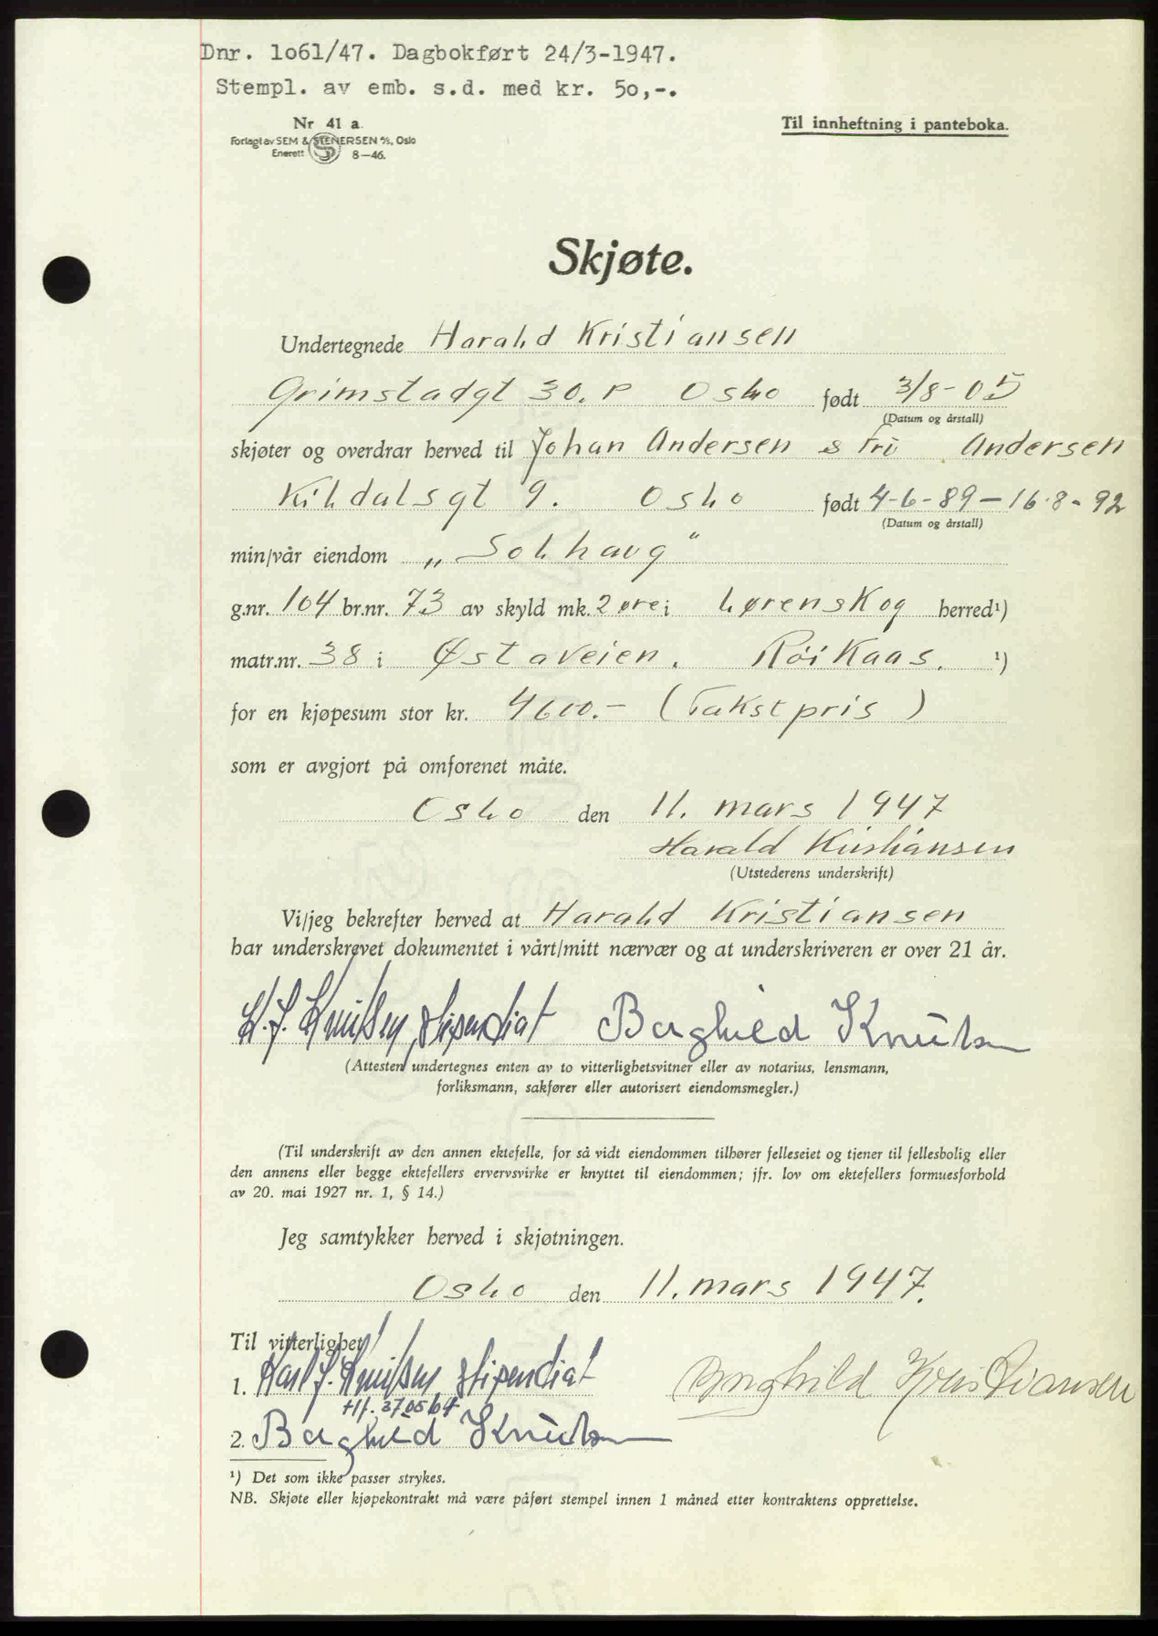 Dnr. 1o61/47. Dagbokført 24/3-1947.
Stempl. av emb. s.d. med kr. 5o,-.
Nr 41 a.
Forlagt av SEM & STENERSEN A/S, Oslo
Enerett 8—46.
Til innheftning i panteboka.
Skjøte.
Undertegnede Harald Kristiansen
Grimstadgt 30. P Oslo født 3/8-05
(Datum og årstall)
skjøter og overdrar herved til Johan Andersen & Fru Andersen
Kildalsgt 9. Oslo født 4-6-89 — 16-8-92
(Datum og årstall)
min/vår eiendom „Solhaug"
g.nr. 104 br.nr. 73 av skyld mk. 2 øre i Lørenskog herred¹)
matr.nr. 38 i Østaveien. Røikaas. ¹)
for en kjøpesum stor kr. 4600.- (Takstpris)
som er avgjort på omforenet måte.
Oslo den 11. mars 1947
Harald Kristiansen
(Utstederens underskrift)
Vi/jeg bekrefter herved at Harald Kristiansen
har underskrevet dokumentet i vårt/mitt nærvær og at underskriveren er over 21 år.
K. J. Knutsen, stipendiat Borghild Knutsen
(Attesten undertegnes enten av to vitterlighetsvitner eller av notarius, lensmann,
forliksmann, sakfører eller autorisert eiendomsmegler.)
(Til underskrift av den annen ektefelle, for så vidt eiendommen tilhører felleseiet og tjener til fellesbolig eller
den annens eller begge ektefellers ervervsvirke er knyttet til eiendommen; jfr. lov om ektefellers formuesforhold
av 20. mai 1927 nr. 1, § 14.)
Jeg samtykker herved i skjøtningen.
Oslo den 11. mars 1947.
Til vitterlighet
1. Karl J. Knutsen, stipendiat Borghild Kristiansen
tlf. 370564
2. Borghild Knutsen
¹) Det som ikke passer strykes.
NB. Skjøte eller kjøpekontrakt må være påført stempel innen 1 måned etter kontraktens opprettelse.